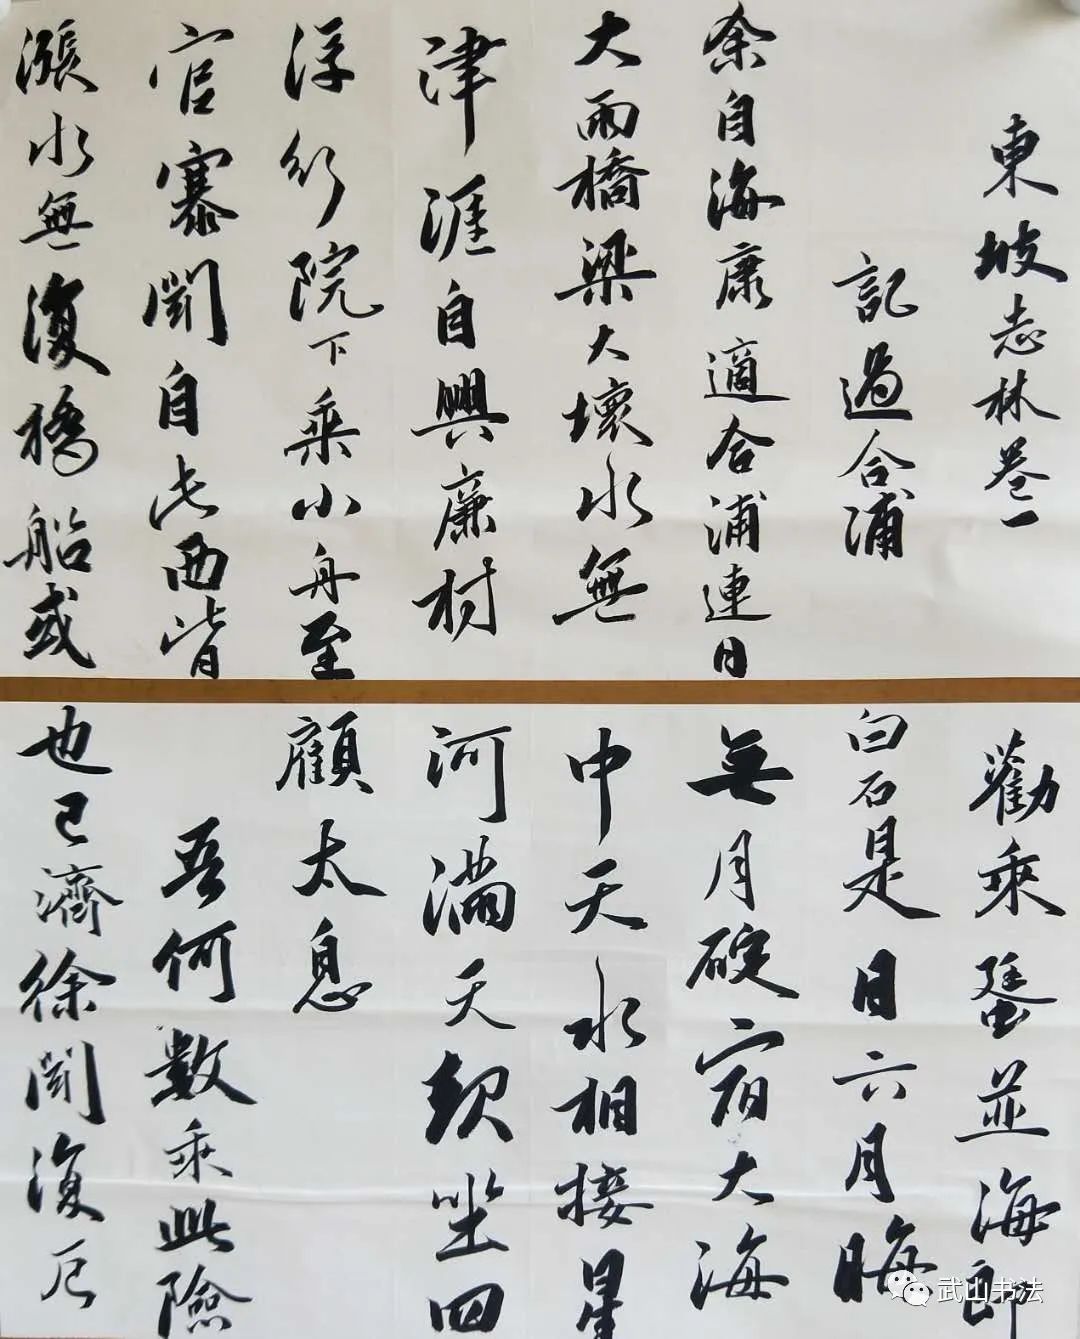 東坡志林卷一
記過合浦
余自海康適合浦連日
大雨橋梁大壞水無
津涯自興廉村
淨行院下乘小舟至
官寨聞自此西皆
漲水無復橋船或
勸乘蜑並海即
白石是日六月晦
無月碇宿大海
中天水相接星
河滿天起坐四
顧太息
吾何數乘此險
也已濟徐聞復厄
武山书法